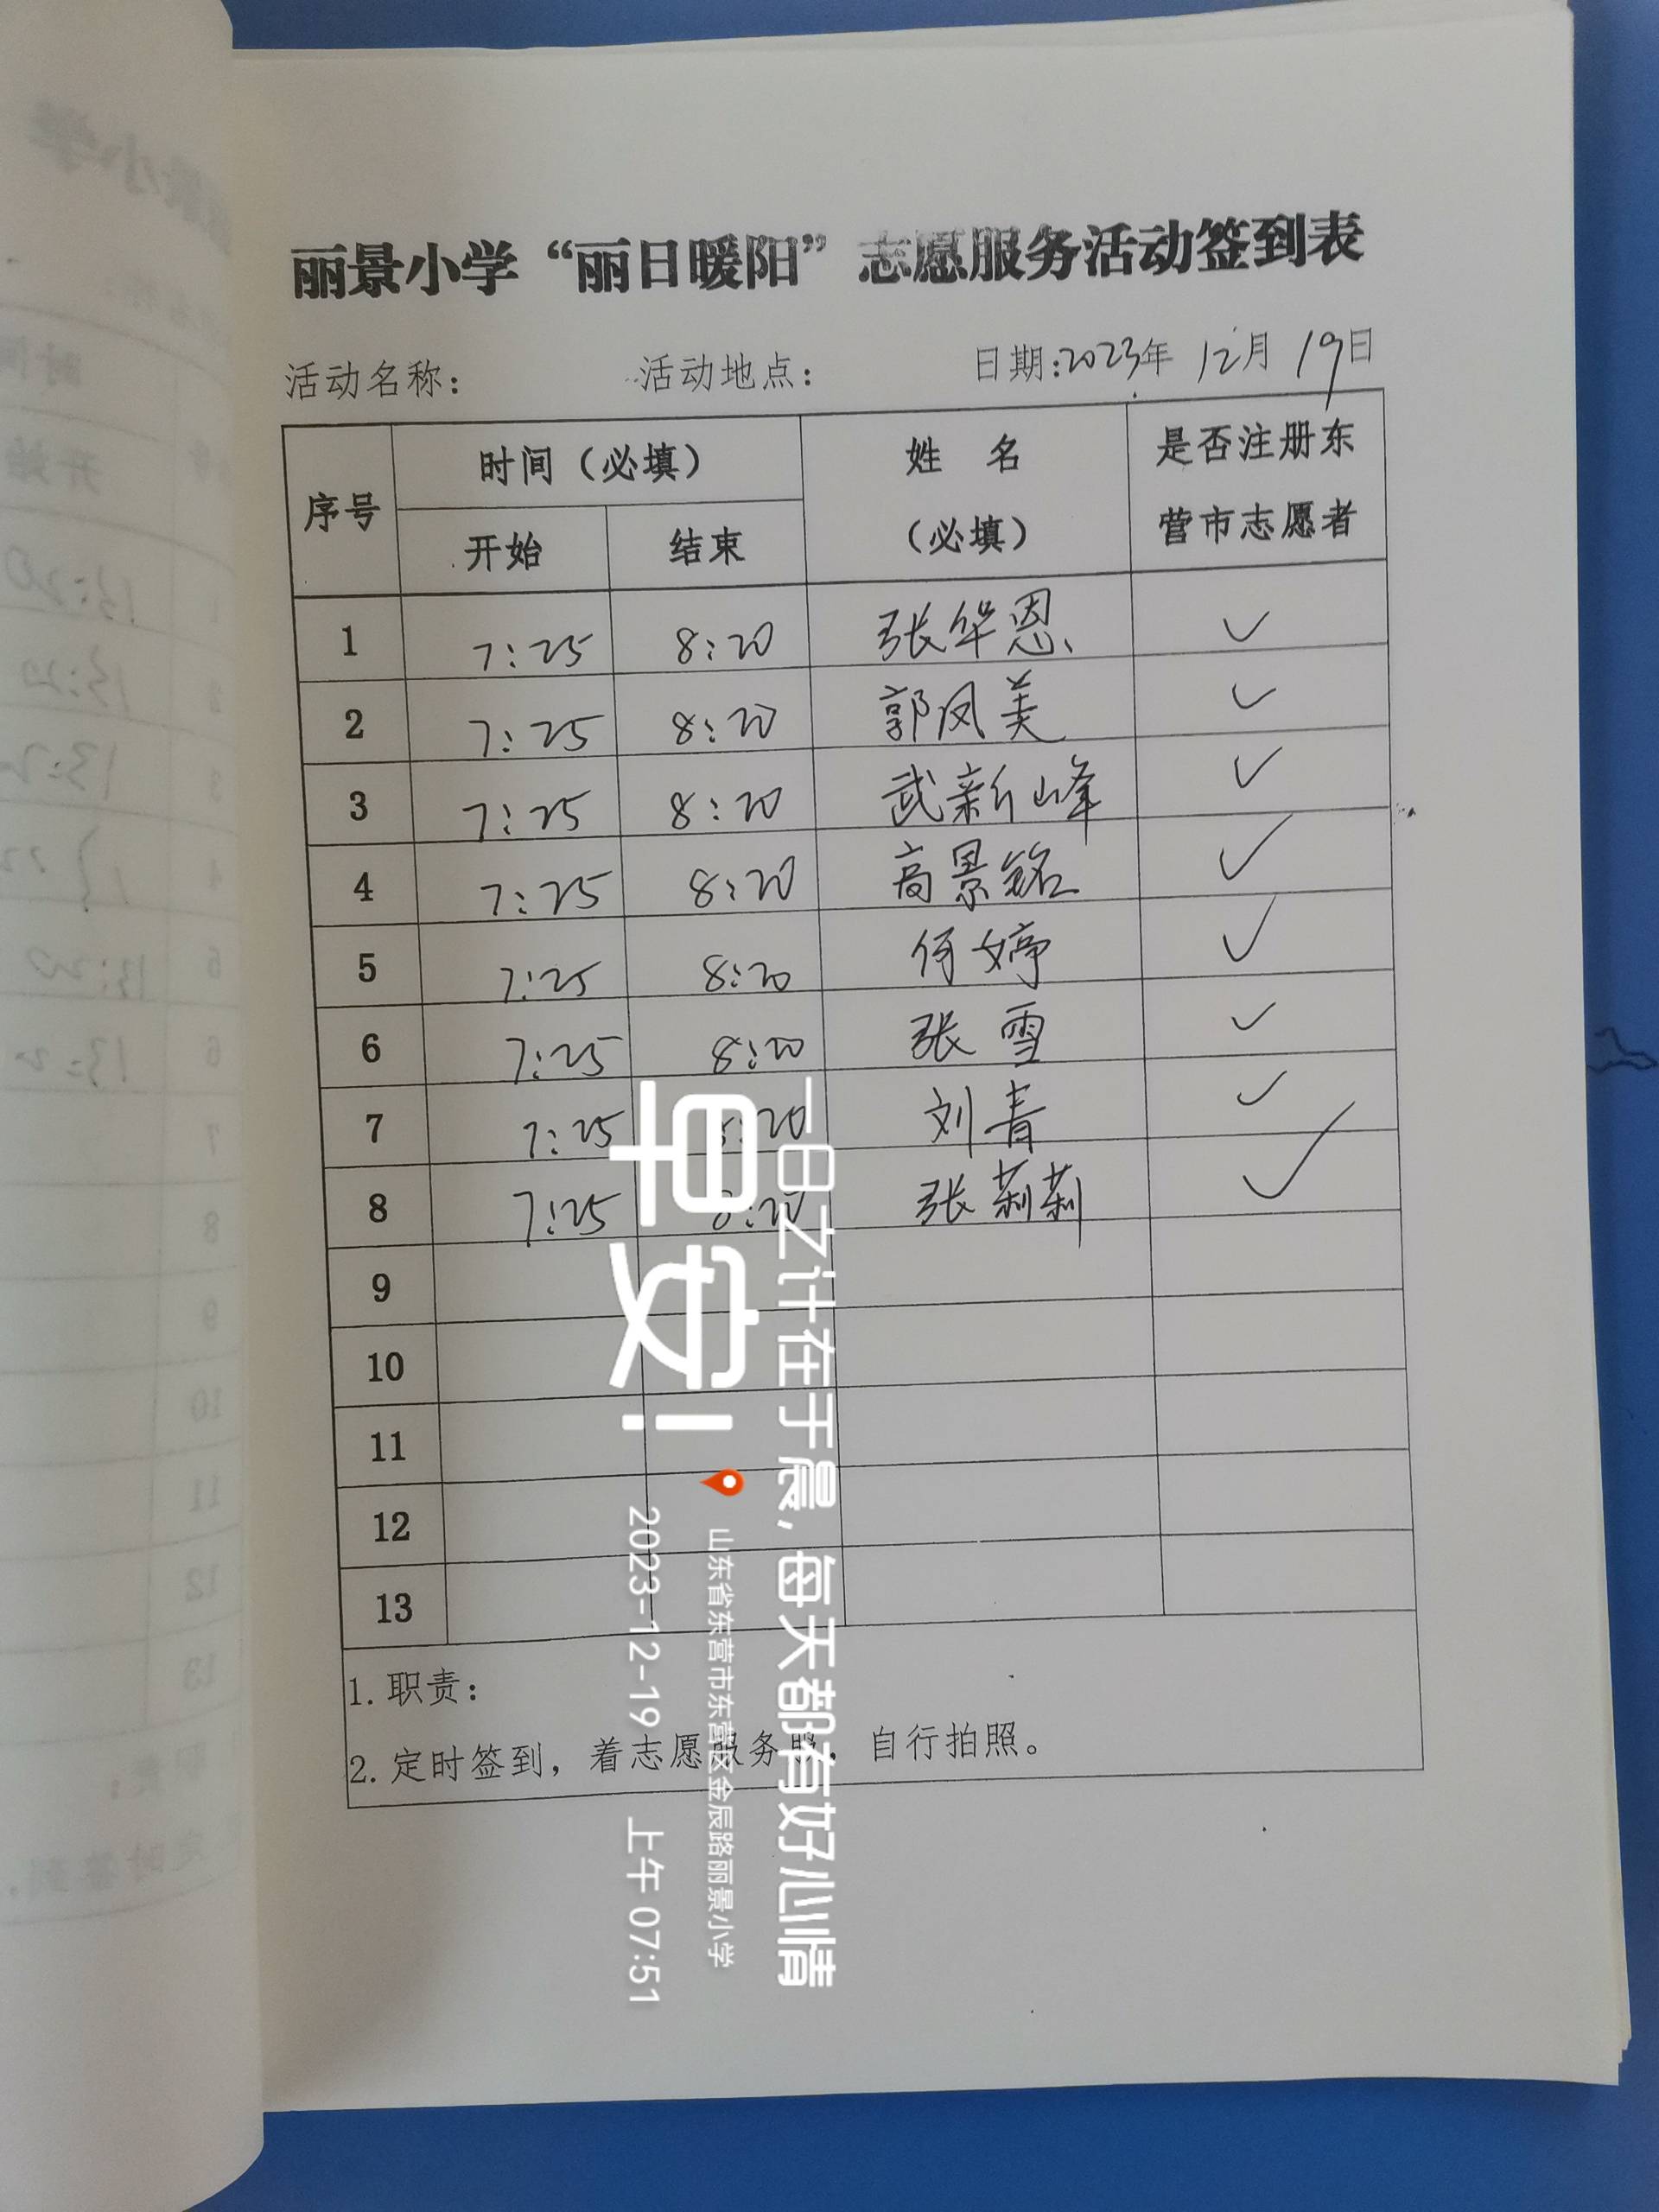 丽景小学“丽日暖阳”志愿服务活动签到表
活动名称： 活动地点： 日期:2023年 12月 19日
序号 时间（必填） 姓 名（必填） 是否注册东营市志愿者
开始 结束
1 7:25 8:20 张华恩 ✓
2 7:25 8:20 郭凤美 ✓
3 7:25 8:20 武新峰 ✓
4 7:25 8:20 高景铭 ✓
5 7:25 8:20 何婷 ✓
6 7:25 8:20 张雪 ✓
7 7:25 8:20 刘青 ✓
8 7:25 8:20 张莉莉 ✓
9
10
11
12
13
1.职责：
2.定时签到，着志愿服务服，自行拍照。
一日之计在于晨,每天都有好心情
早安!
山东省东营市东营区金辰路丽景小学
2023-12-19 上午 07:51